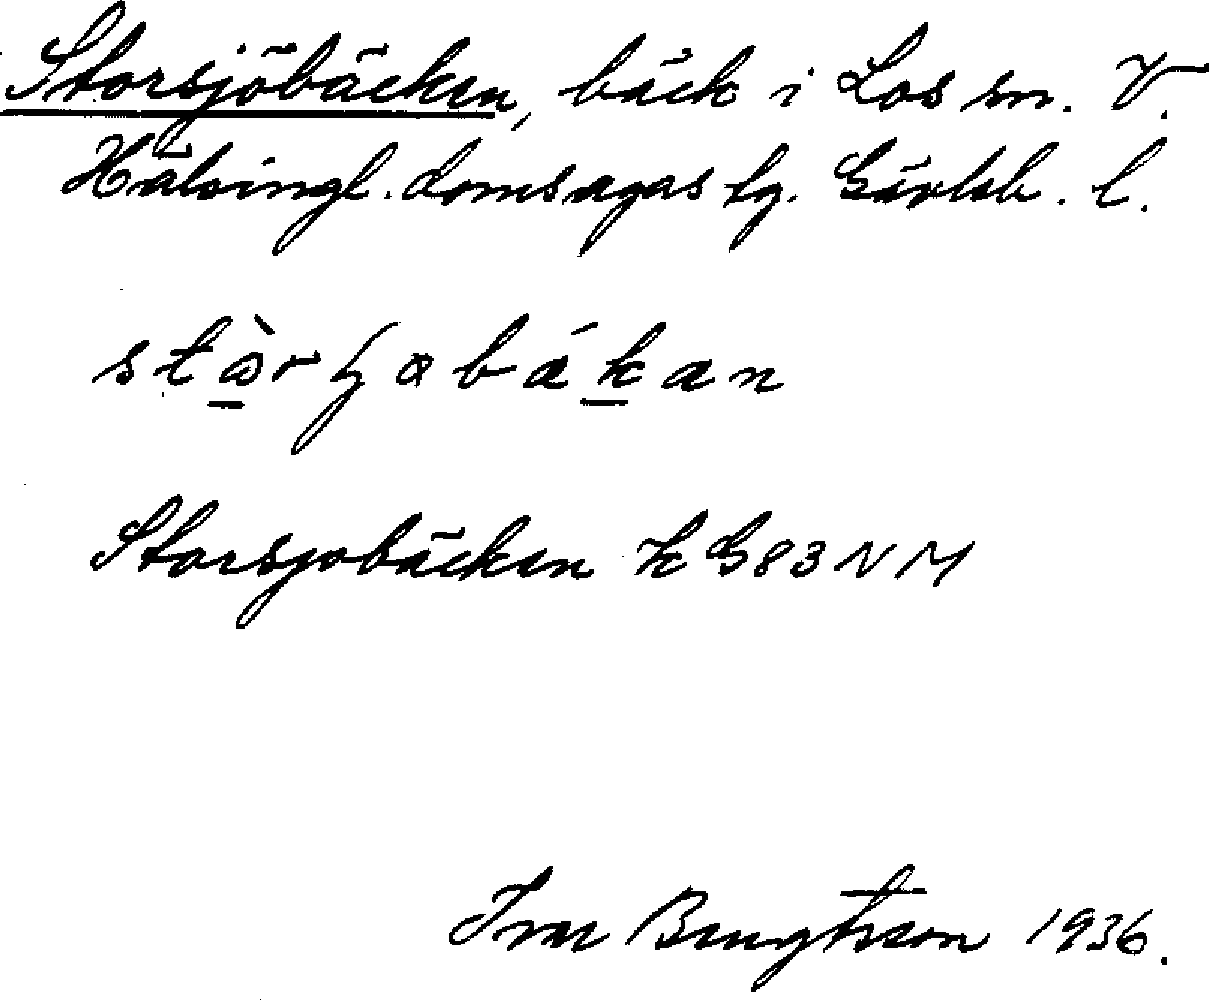 Storsjöbäcken, bäck i Los sn. V.
Hälsingl. domsagas tg. Gävleb. l.
Storsjöbäcken k G83NM
Ivar Bengtsson 1936.